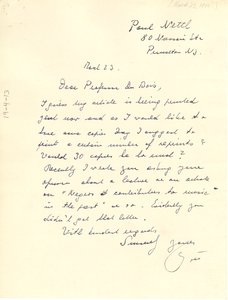 Paul Nettl
80 Nassau Str
Princeton N.J.
March 23
Dear Professor Du Bois,
I guess my article is being printed
just now and as I would like to
have some copies may I suggest to
print a certain number of reprints?
Would 30 copies be too much?
Recently I wrote you asking your
opinion about a lecture or an article
on "Negroes contribution to music
in the past" or so. Evidently you
didn't get that letter.
With kindest regards
Sincerely Yours